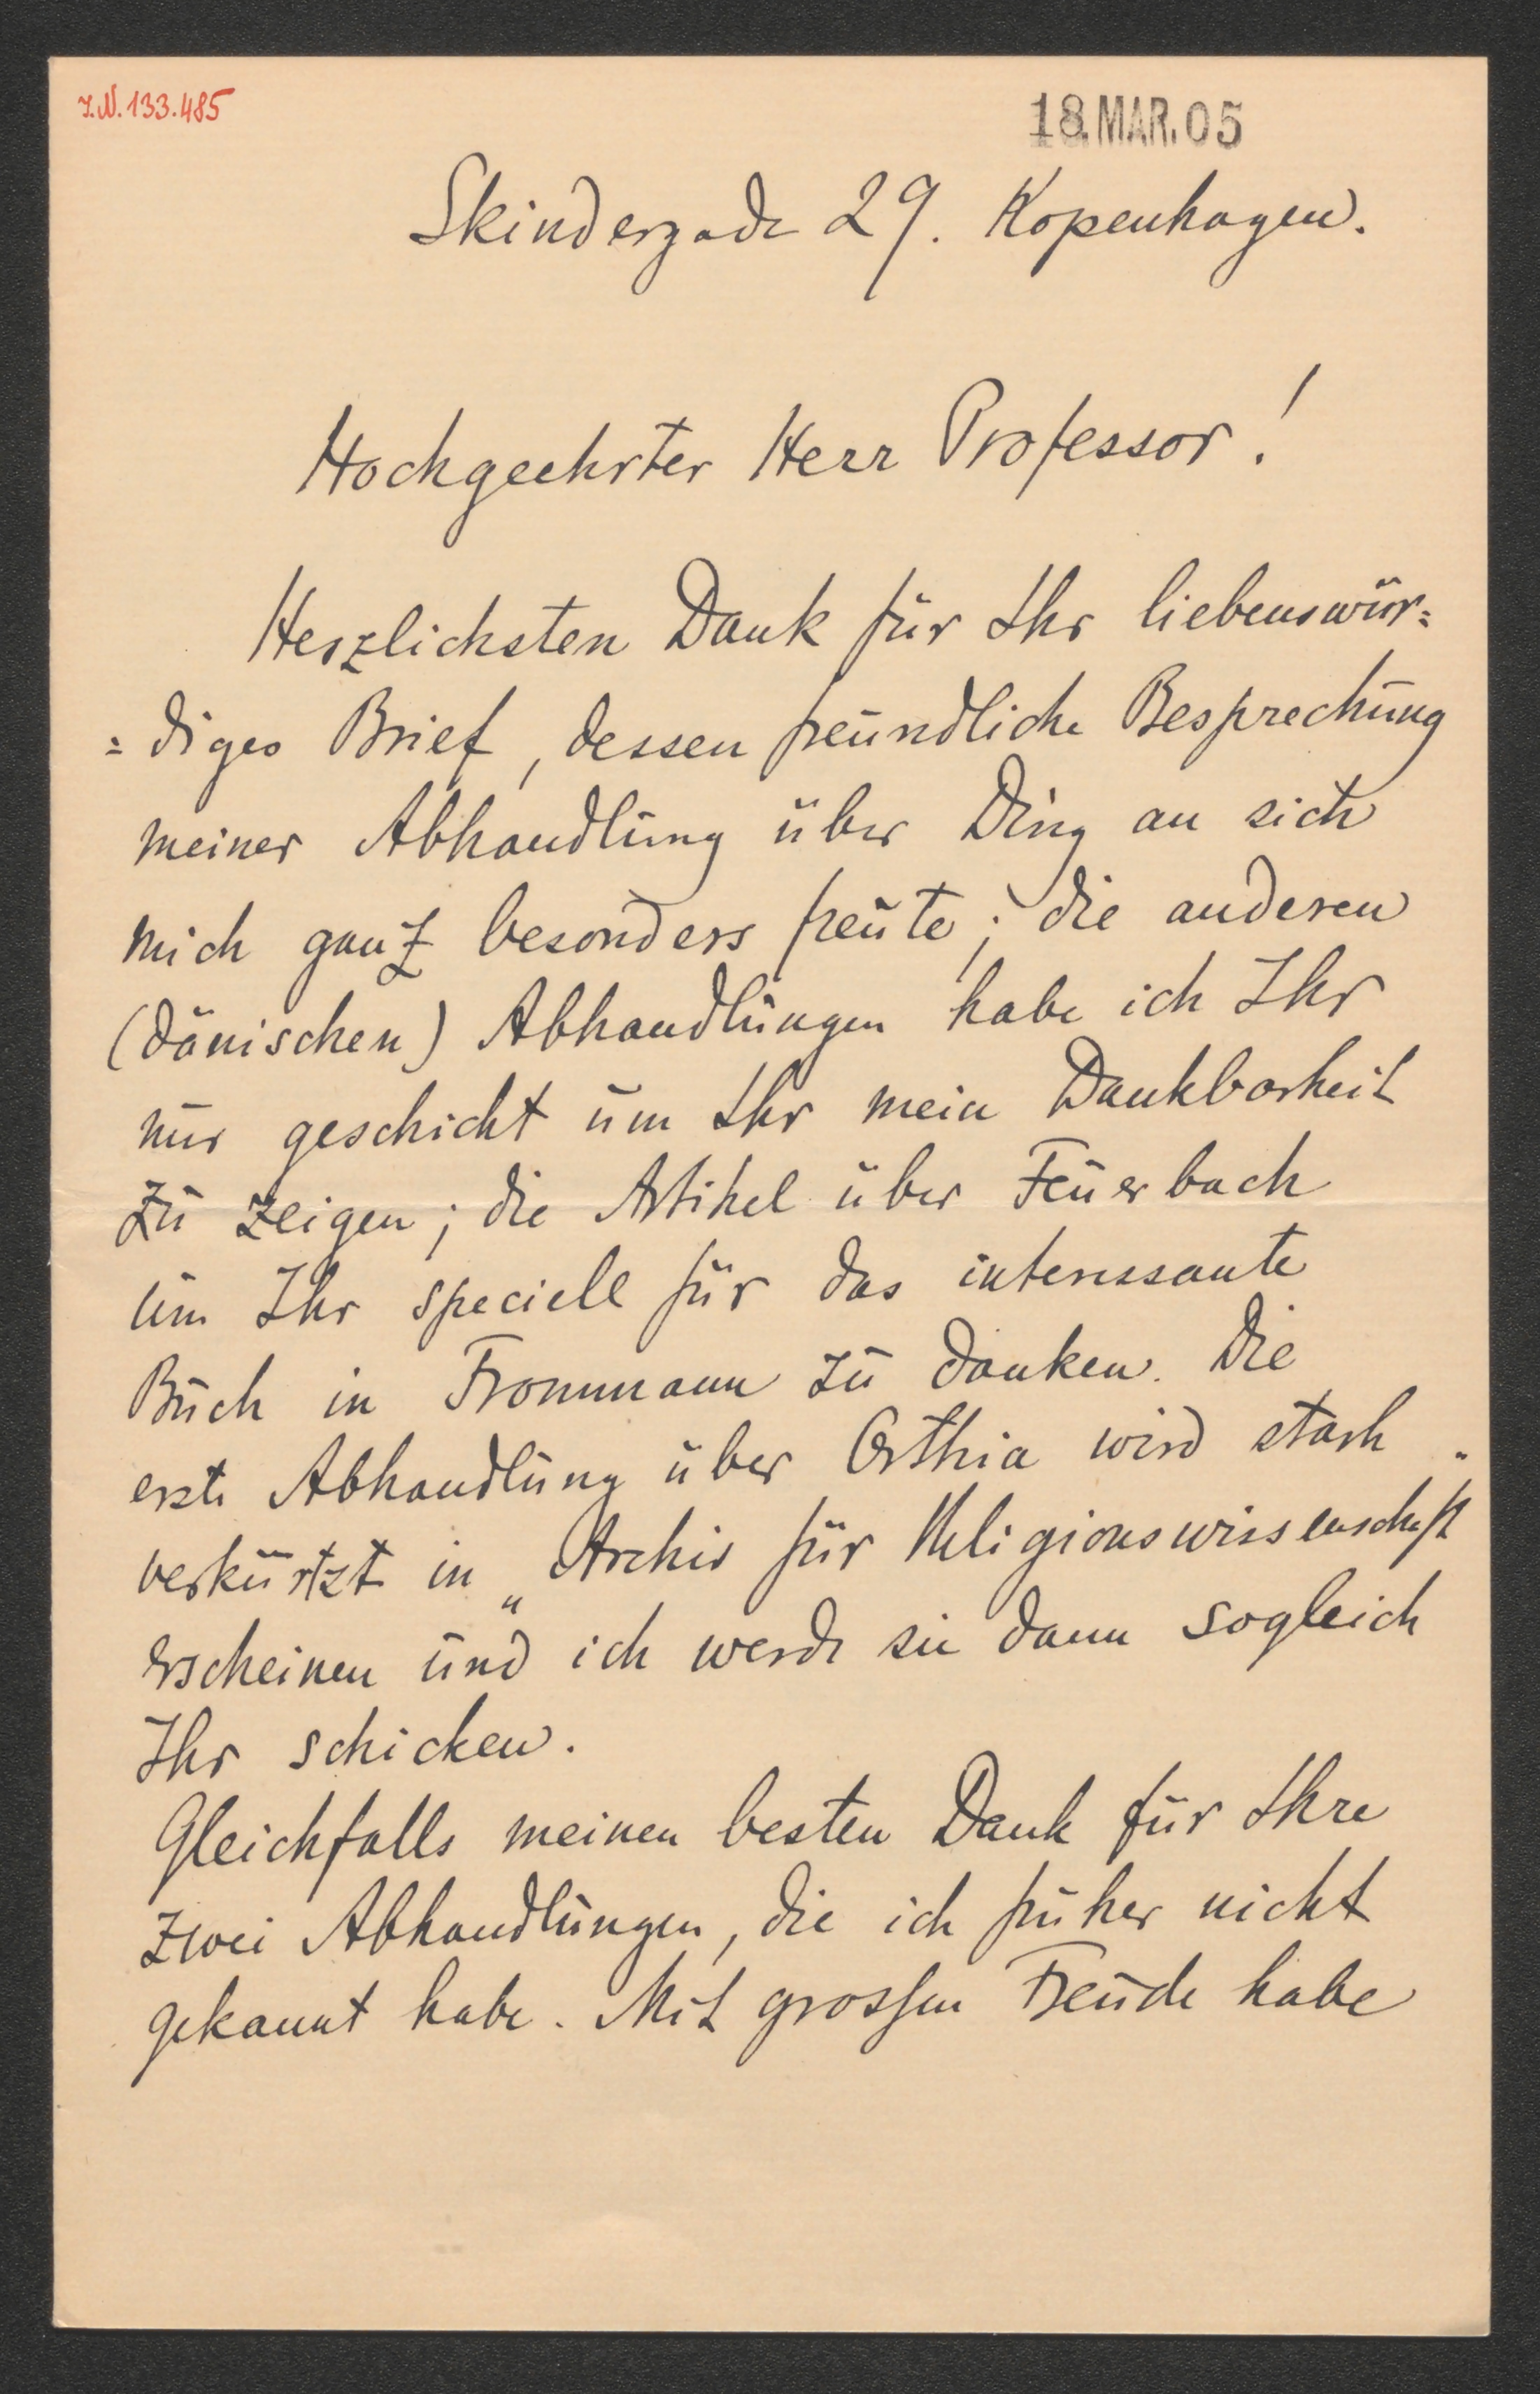 I.N. 133.485
18. MAR. 05
Skindergade 29. Kopenhagen.
Hochgeehrter Herr Professor!
Herzlichsten Dank für Ihr liebenswür=
=diges Brief, dessen freundliche Besprechung
meiner Abhandlung über Ding an sich
mich ganz besonders freute; die anderen
(dänischen) Abhandlungen habe ich Ihr
nur geschickt um Ihr mein Dankbarkeit
zu zeigen; die Artikel über Feuerbach
um Ihr speciell für das interessante
Buch in Frommann zu danken. Die
erste Abhandlung über Orthia wird stark
verkürtzt in „Archiv für Religionswissenschaft"
erscheinen und ich werde sie dann sogleich
Ihr schicken.
Gleichfalls meinen besten Dank für Ihre
zwei Abhandlungen, die ich früher nicht
gekannt habe. Mit grossen Freude habe